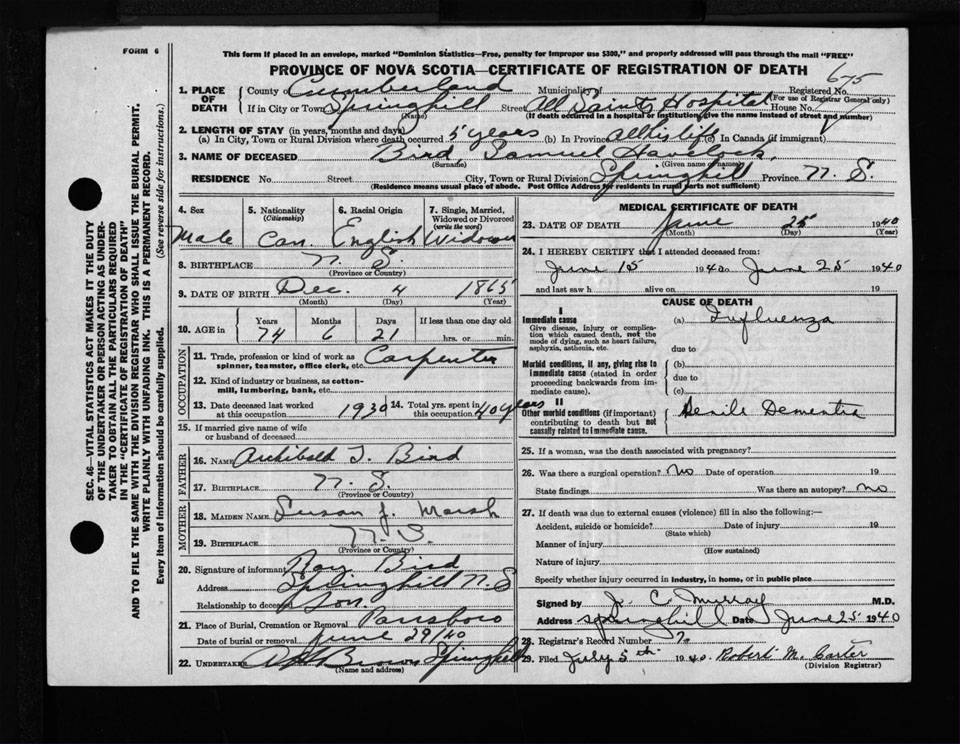 FORM 6
This form if placed in an envelope, marked "Dominion Statistics—Free, penalty for improper use $300," and properly addressed will pass through the mail "FREE"
PROVINCE OF NOVA SCOTIA—CERTIFICATE OF REGISTRATION OF DEATH
675
1. PLACE OF DEATH
County of Cumberland Municipality of Registered No.
(For use of Registrar General only)
If in City or Town Springhill Street All Saints Hospital House No.
(Name) (If death occurred in a hospital or institution, give the name instead of street and number)
2. LENGTH OF STAY (in years, months and days)
(a) In City, Town or Rural Division where death occurred 5 years (b) In Province all his life (c) In Canada (if immigrant)
3. NAME OF DECEASED Bird, Samuel Havelock,
(Surname) (Given name or names)
RESIDENCE No. Street City, Town or Rural Division Springhill Province N. S.
(Residence means usual place of abode. Post Office Address for residents in rural parts not sufficient)
4. Sex Male
5. Nationality (Citizenship) Can.
6. Racial Origin English
7. Single, Married, Widowed or Divorced (write the word) Widower
8. BIRTHPLACE N. S.
(Province or Country)
9. DATE OF BIRTH Dec. 4 1865
(Month) (Day) (Year)
10. AGE in Years Months Days If less than one day old
74 6 21 hrs. or min.
OCCUPATION
11. Trade, profession or kind of work as spinner, teamster, office clerk, etc. Carpenter
12. Kind of industry or business, as cotton-mill, lumbering, bank, etc.
13. Date deceased last worked at this occupation 1930
14. Total yrs. spent in this occupation 40 years
15. If married give name of wife or husband of deceased
FATHER
16. Name Archibald T. Bird
17. Birthplace N. S.
(Province or Country)
MOTHER
18. Maiden Name Susan J. Marsh
19. Birthplace N. S.
(Province or Country)
20. Signature of informant Roy Bird
Address Springhill N. S
Relationship to deceased Son.
21. Place of Burial, Cremation or Removal Parrsboro
Date of burial or removal June 29/40
22. UNDERTAKER Brown Springhill
(Name and address)
MEDICAL CERTIFICATE OF DEATH
23. DATE OF DEATH June 25 1940
(Month) (Day) (Year)
24. I HEREBY CERTIFY that I attended deceased from:
June 15 1940 to June 25 1940
and last saw h alive on 19
CAUSE OF DEATH
I
Immediate cause (a) Influenza
Give disease, injury or complication which caused death, not the mode of dying, such as heart failure, asphyxia, asthenia, etc.
due to
Morbid conditions, if any, giving rise to immediate cause (stated in order proceeding backwards from immediate cause).
(b)
due to
(c)
II
Other morbid conditions (if important) contributing to death but not causally related to immediate cause.
Senile Dementia
25. If a woman, was the death associated with pregnancy?
26. Was there a surgical operation? No Date of operation 19
State findings Was there an autopsy? no
27. If death was due to external causes (violence) fill in also the following:—
Accident, suicide or homicide? Date of injury 19
(State which)
Manner of injury
(How sustained)
Nature of injury
Specify whether injury occurred in industry, in home, or in public place
Signed by J. C. Murray M.D.
Address Springhill Date June 25 1940
28. Registrar's Record Number
29. Filed July 5th 1940 Robert M. Carter
(Division Registrar)
SEC. 46—VITAL STATISTICS ACT MAKES IT THE DUTY
OF THE UNDERTAKER OR PERSON ACTING AS UNDER-
TAKER TO OBTAIN ALL THE PARTICULARS REQUIRED
IN THE "CERTIFICATE OF REGISTRATION OF DEATH"
AND TO FILE THE SAME WITH THE DIVISION REGISTRAR WHO SHALL ISSUE THE BURIAL PERMIT.
WRITE PLAINLY WITH UNFADING INK. THIS IS A PERMANENT RECORD.
Every item of information should be carefully supplied. (See reverse side for instructions.)